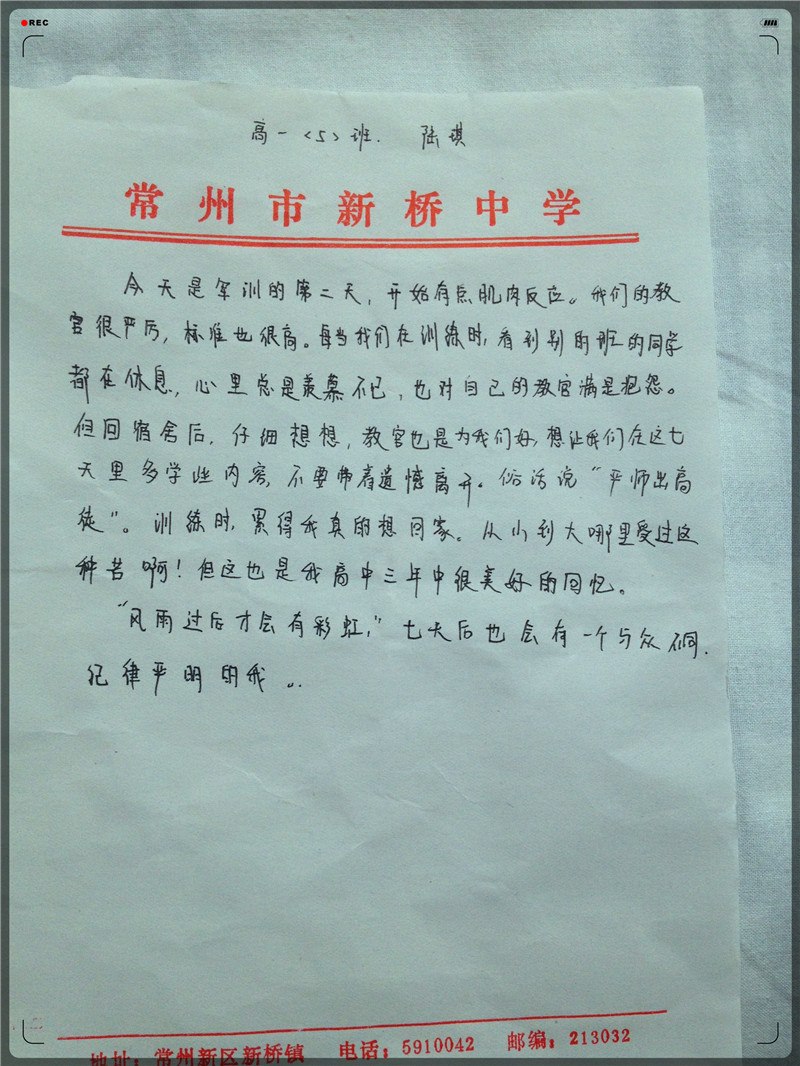 REC
高一<5>班. 陆琪
常州市新桥中学
今天是军训的第二天，开始有点肌肉反应。我们的教
官很严厉，标准也很高。每当我们在训练时，看到别的班的同学
都在休息，心里总是羡慕不已，也对自己的教官满是抱怨。
但回宿舍后，仔细想想，教官也是为我们好，想让我们在这七
天里多学些内容，不要带着遗憾离开。俗话说“严师出高
徒”。训练时，累得我真的想回家。从小到大哪里受过这
种苦啊！但这也是我高中三年中很美好的回忆。
“风雨过后才会有彩虹，”七天后也会有一个与众不同，
纪律严明的我。
地址：常州新区新桥镇 电话：5910042 邮编：213032